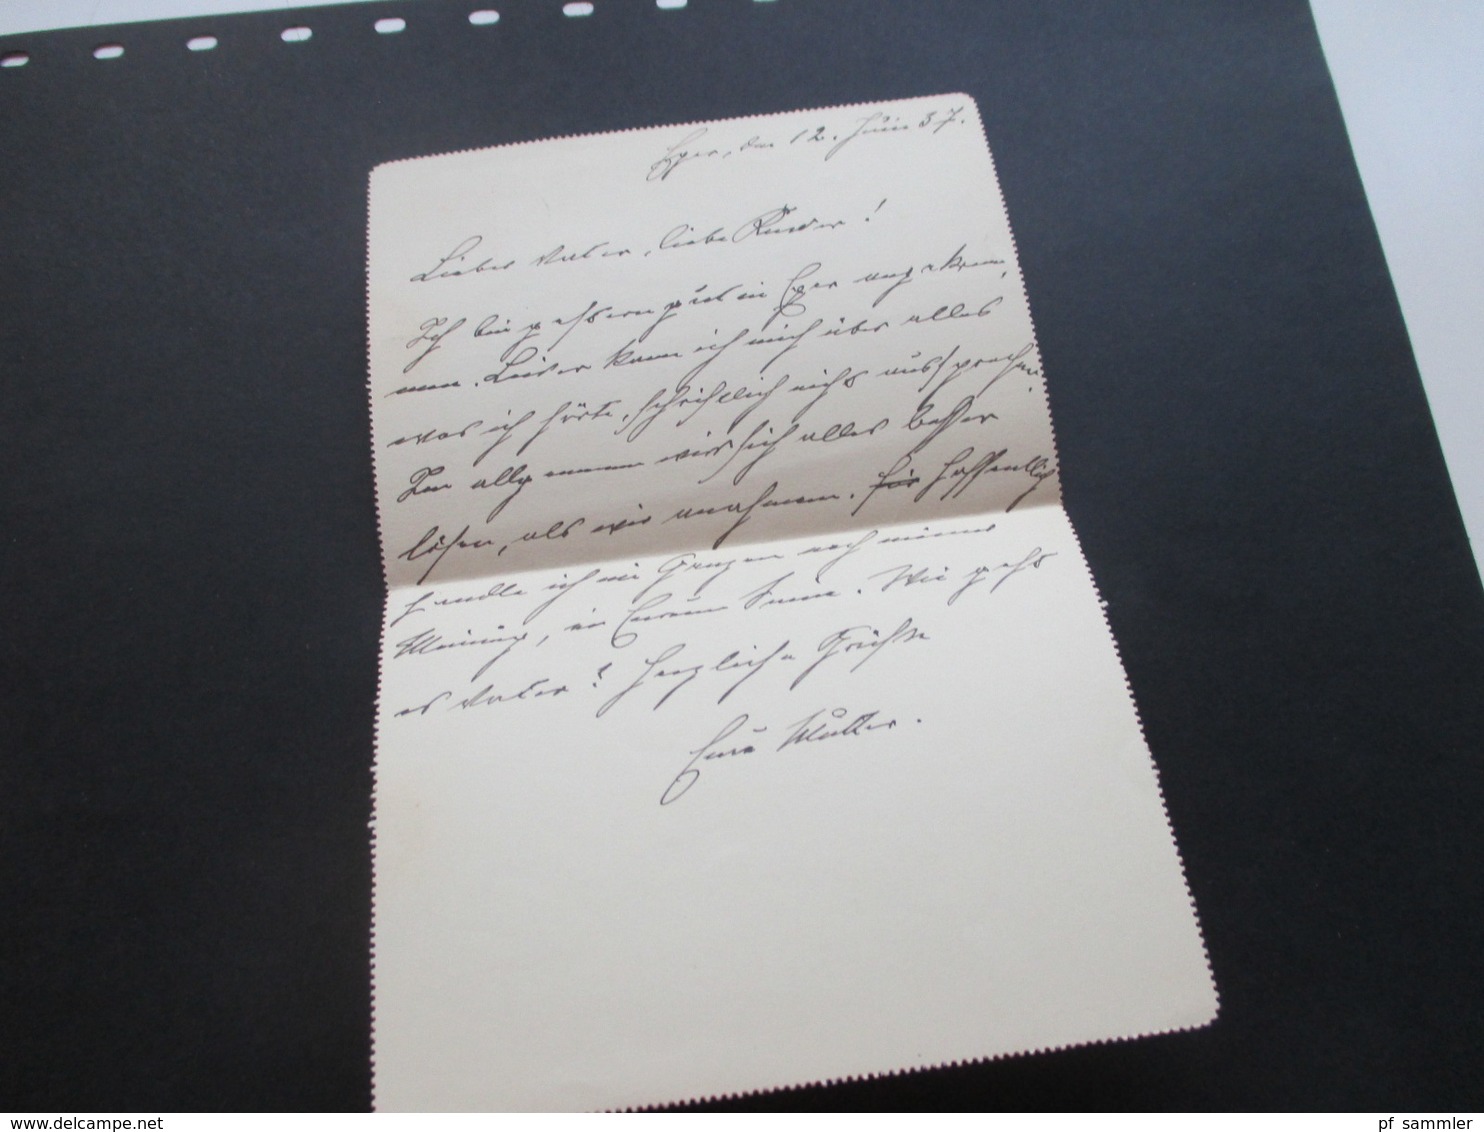 Eger, den 12. Juni 37.
Lieber Vater, liebe Kinder!
Ich bin gestern gut in Eger angekom
men. Leider kann ich mich über alles
was ich hörte, schriftlich nicht aussprechen.
Im allgemeinen wird sich alles besser
lösen, als wir annahmen. für Hoffentlich
handle ich im Ganzen nach meiner
Meinung, in Eurem Sinne. Wie gehts
es Vater? Herzliche Grüße
Eure Mutter.
www.delcampe.net
pf_sammler